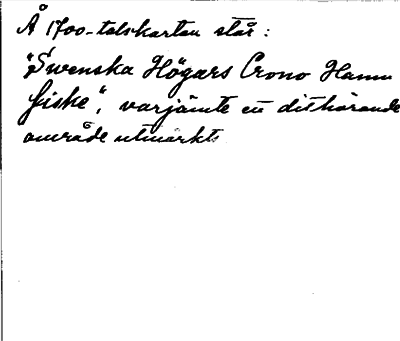 Å 1700-talskartan står:
"Swenska Högars Crono Hamn
fiske", varjämte ett dithörande
område utmärkts